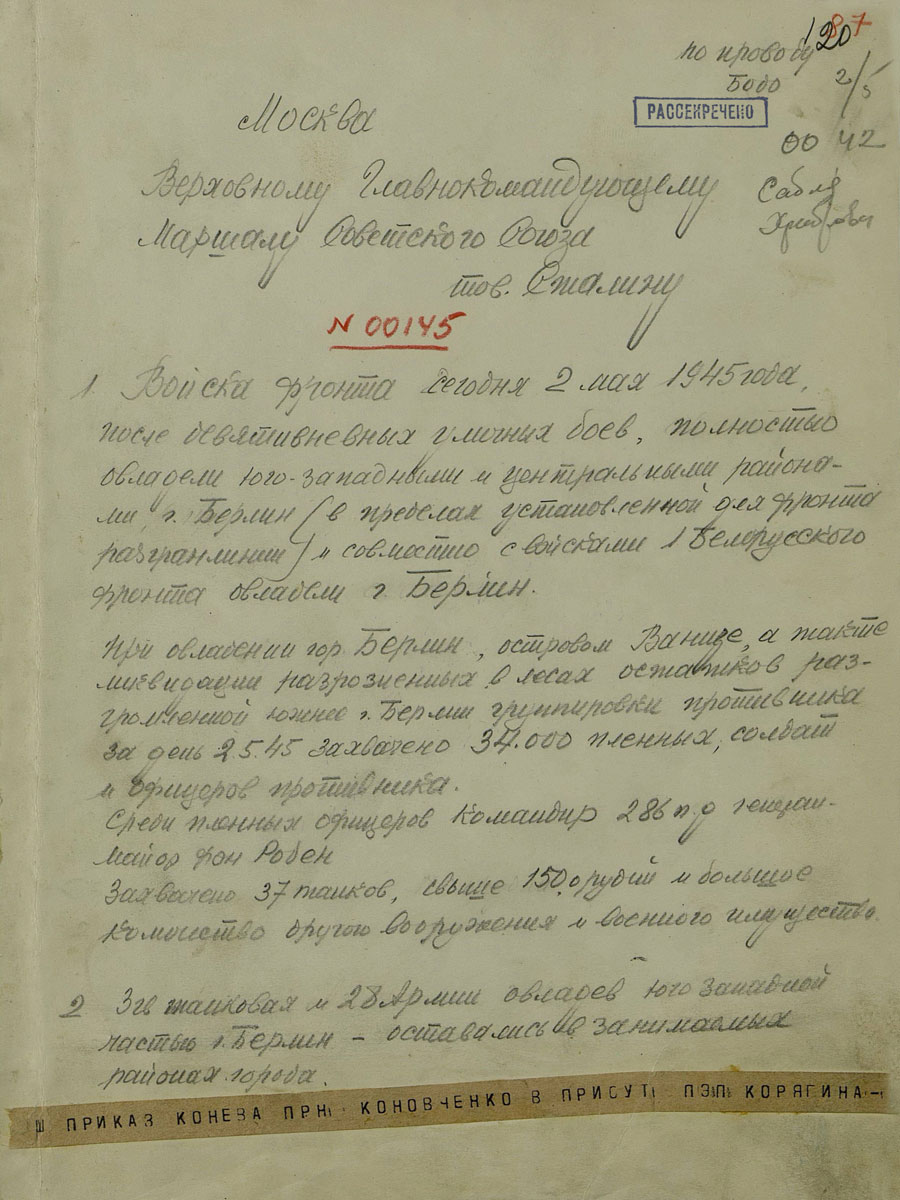 120
87
по проводу
Бодо
2/5
РАССЕКРЕЧЕНО
00 42
Москва
Верховному Главнокомандующему
Сабля
Маршалу Советского Союза
тов. Сталину
N 00145
1. Войска фронта сегодня 2 мая 1945 года,
после девятидневных уличных боев, полностью
овладели юго-западными и центральными района-
ми г. Берлин (в пределах установленной для фронта
разгранлинии) и совместно с войсками 1 Белорусского
фронта овладели г. Берлин.
При овладении гор. Берлин, островом Ванзе, а также
ликвидации разрозненных в лесах остатков раз-
громленной южнее г. Берлин группировки противника
за день 2.5.45 захвачено 34.000 пленных, солдат
и офицеров противника.
Среди пленных офицеров командир 286 пд генерал-
майор фон Робен
Захвачено 37 танков, свыше 150 орудий и большое
количество другого вооружения и военного имущества.
2 3 гв танковая и 28 Армии овладев юго западной
частью г. Берлин – оставались в занимаемых
районах города.
Ш ПРИКАЗ КОНЕВА ПРН КОНОВЧЕНКО В ПРИСУТ ПЗП КОРЯГИНА—